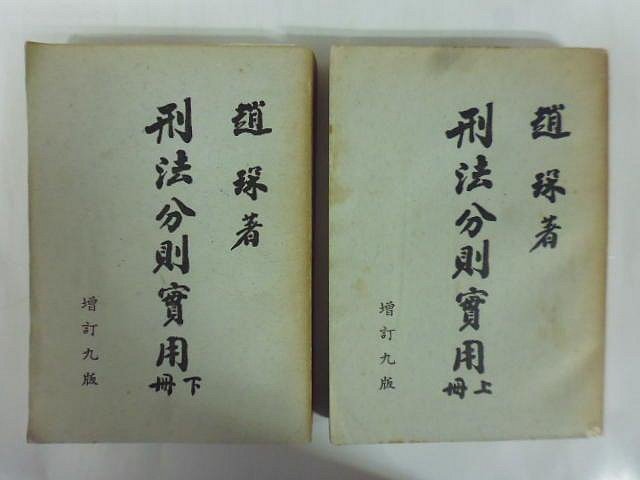 趙琛著
刑法分則實用
下冊
增訂九版
趙琛著
刑法分則實用
上冊
增訂九版